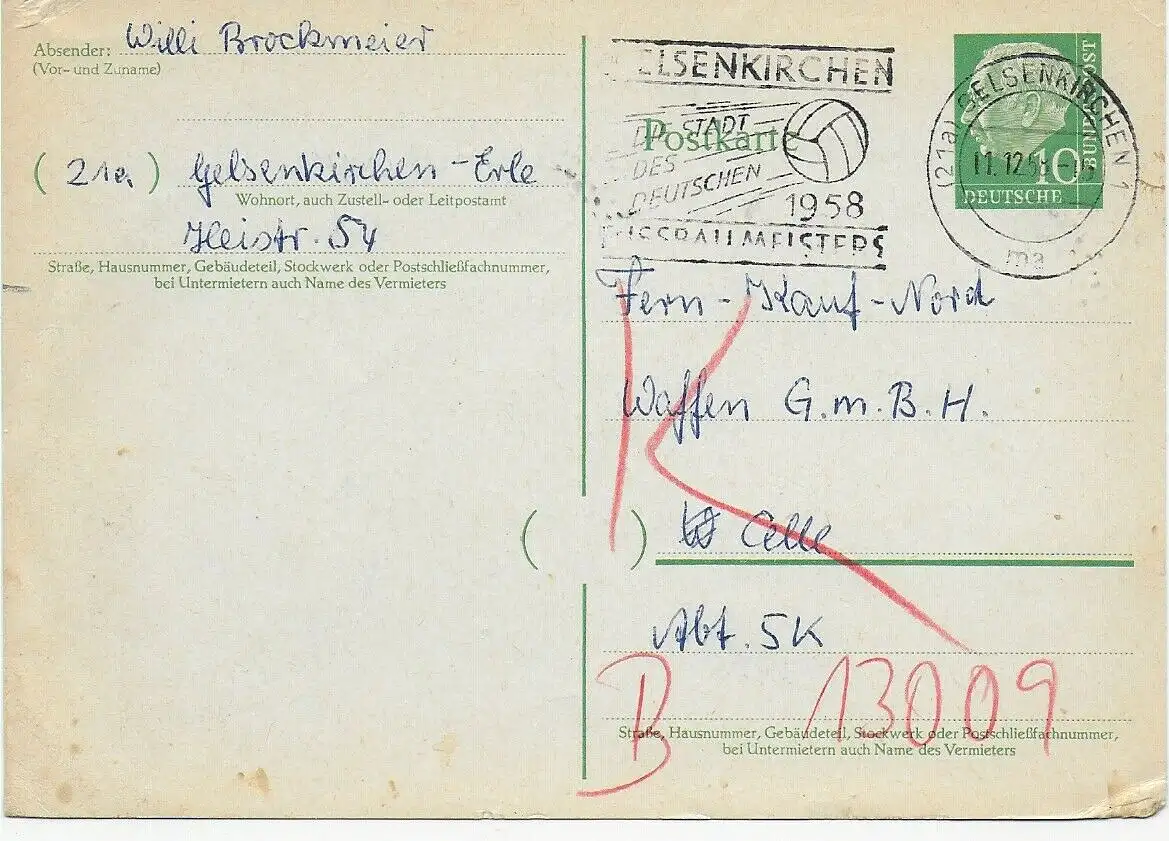 Absender: Willi Brockmeier
(Vor- und Zuname)
(21a) Gelsenkirchen-Erle
Wohnort, auch Zustell- oder Leitpostamt
Heistr. 54
Straße, Hausnummer, Gebäudeteil, Stockwerk oder Postschließfachnummer,
bei Untermietern auch Name des Vermieters
ELSENKIRCHEN
Postkarte
STADT
DES
DEUTSCHEN
1958
FUSSBALLMEISTERS
(21a) GELSENKIRCHEN 1
11.12.58
ma
10
DEUTSCHE
BUNDESPOST
Fern-Kauf-Nord
Waffen G.m.B.H.
( ) Celle
Abt. 5K
K
B 13009
Straße, Hausnummer, Gebäudeteil, Stockwerk oder Postschließfachnummer,
bei Untermietern auch Name des Vermieters